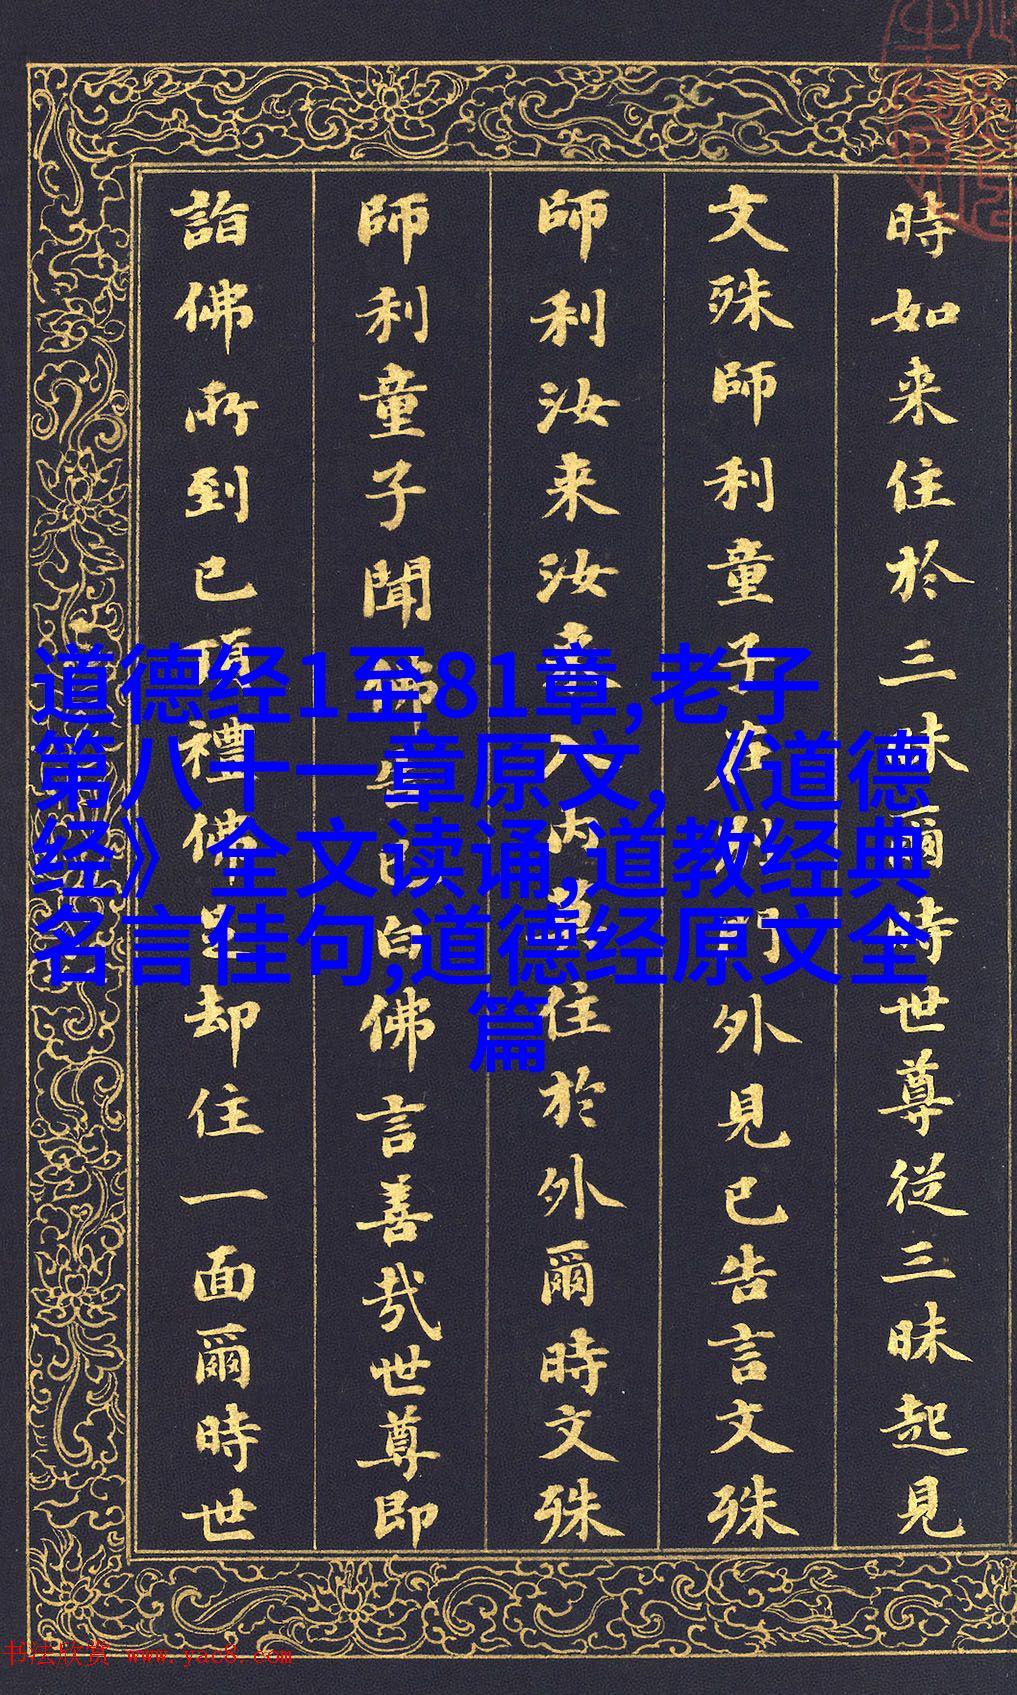 時如来住於三昧爾時世尊従三昧起見
文殊師利童子在門外見已告言文殊
師利汝来汝来入内莫住於外爾時文殊
師利童子聞佛告已白佛言善哉世尊即
詣佛所到已頂禮佛足却住一面爾時世
道德经1至81章,老子
第八十一章原文,《道德
经》全文读诵,道教经典
名言佳句,道德经原文全
篇
书法欣赏 www.yac8.com